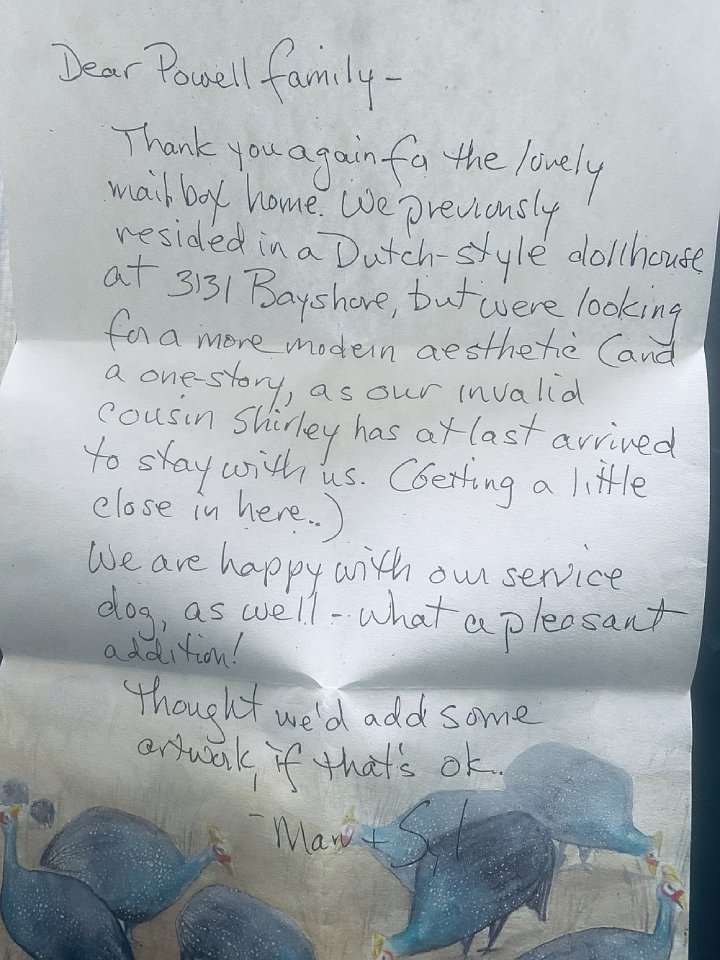 Dear Powell family-
Thank you again for the lovely
mailbox home. We previously
resided in a Dutch-style dollhouse
at 3131 Bayshore, but were looking
for a more modern aesthetic (and
a one-story, as our invalid
cousin Shirley has at last arrived
to stay with us. (Getting a little
close in here..)
We are happy with our service
dog, as well - what a pleasant
addition!
Thought we'd add some
artwork, if that's ok..